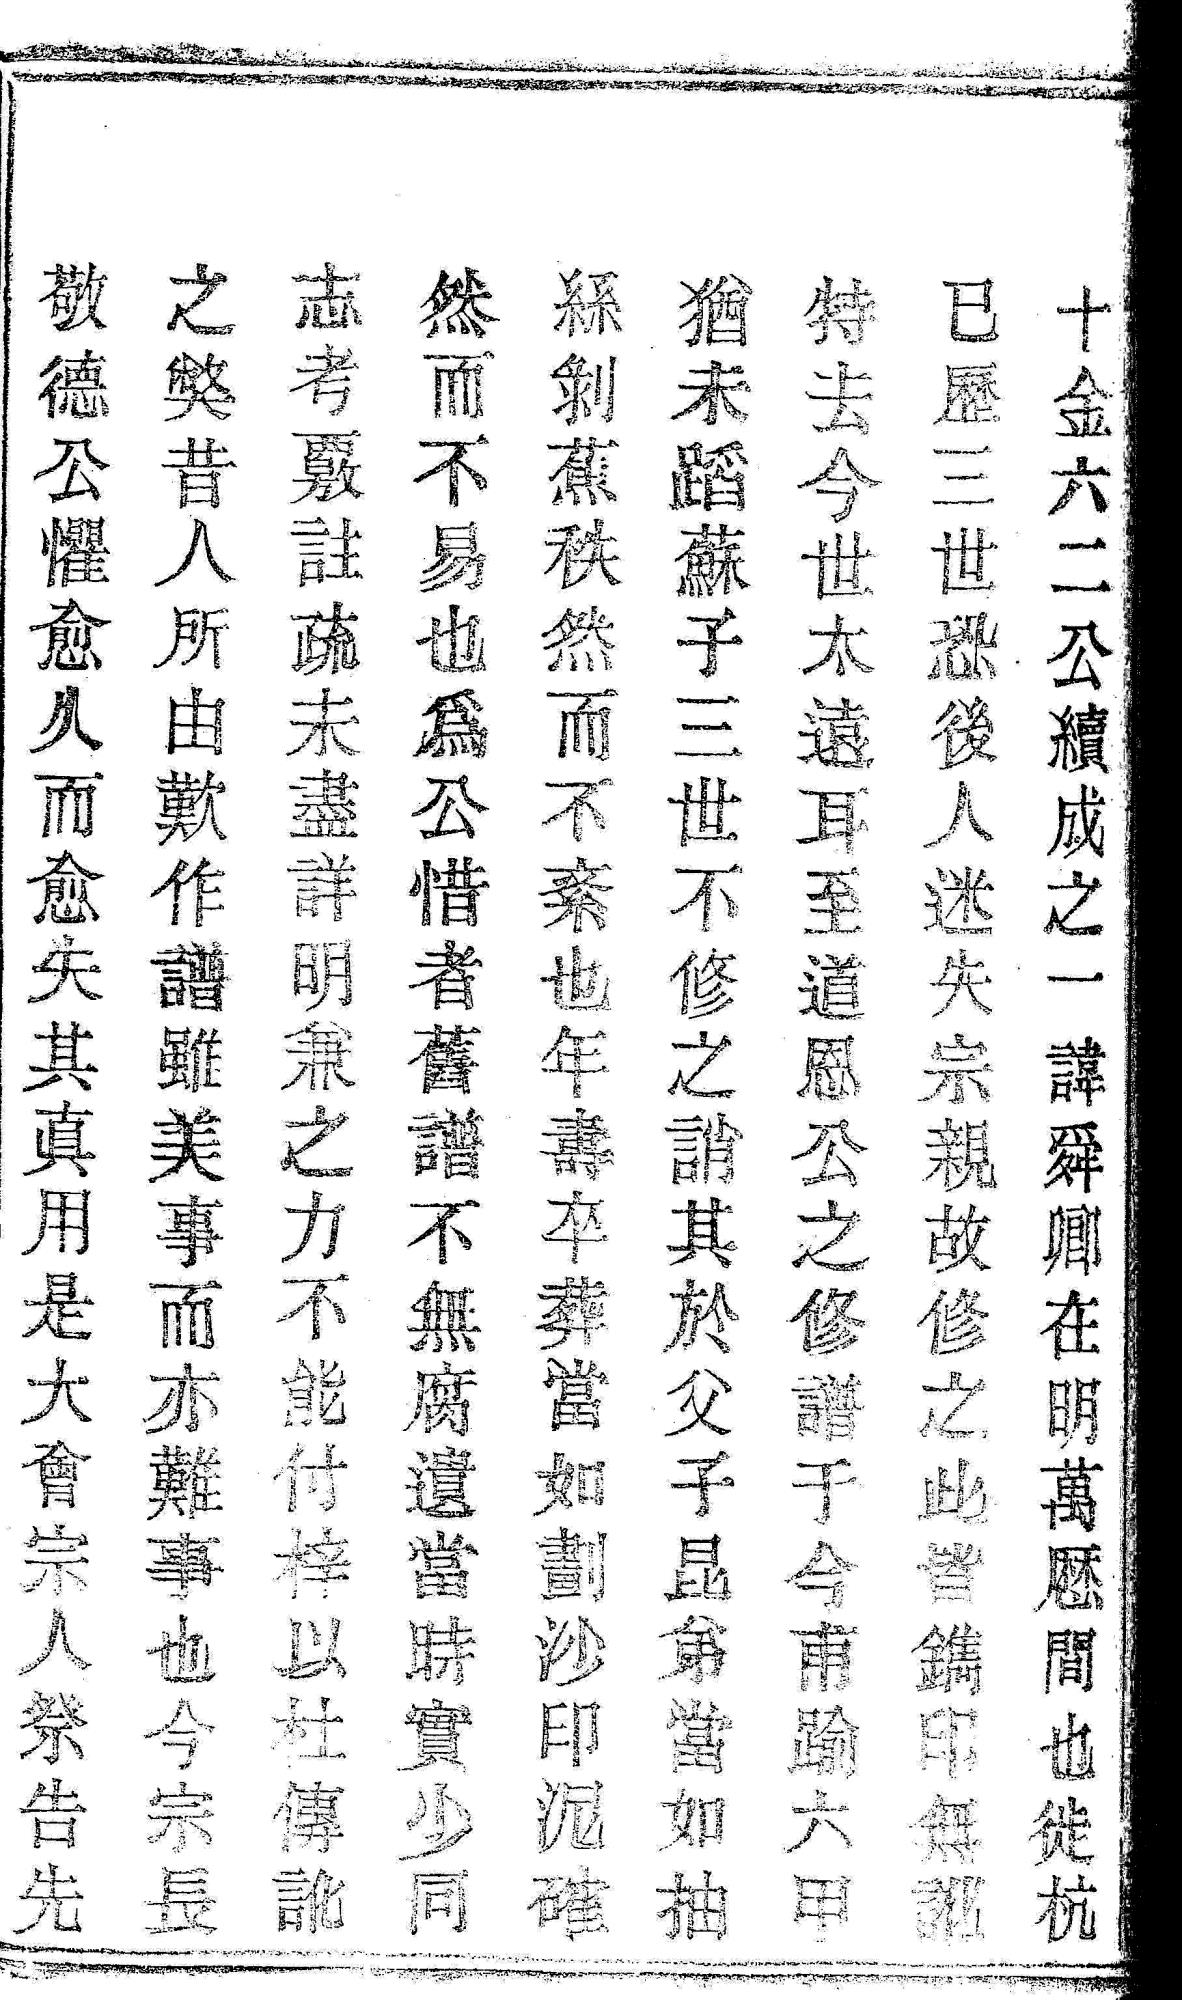 十金六二公續成之一諱舜卿在明萬歷間也徙杭
已歷三世恐後人迷失宗親故修之此皆鐫印無訛
特去今世太遠耳至道恩公之修譜于今甫踰六甲
猶未蹈蘇子三世不修之誚其於父子昆弟當如抽
絲剝蕉秩然而不紊也年壽卒葬當如劃沙印泥確
然而不易也爲公惜者舊譜不無腐遺當時實少同
志考覈註疏未盡詳明兼之力不能付梓以杜傳訛
之獘昔人所由歎作譜雖美事而亦難事也今宗長
敬德公懼愈久而愈失其真用是大會宗人祭告先